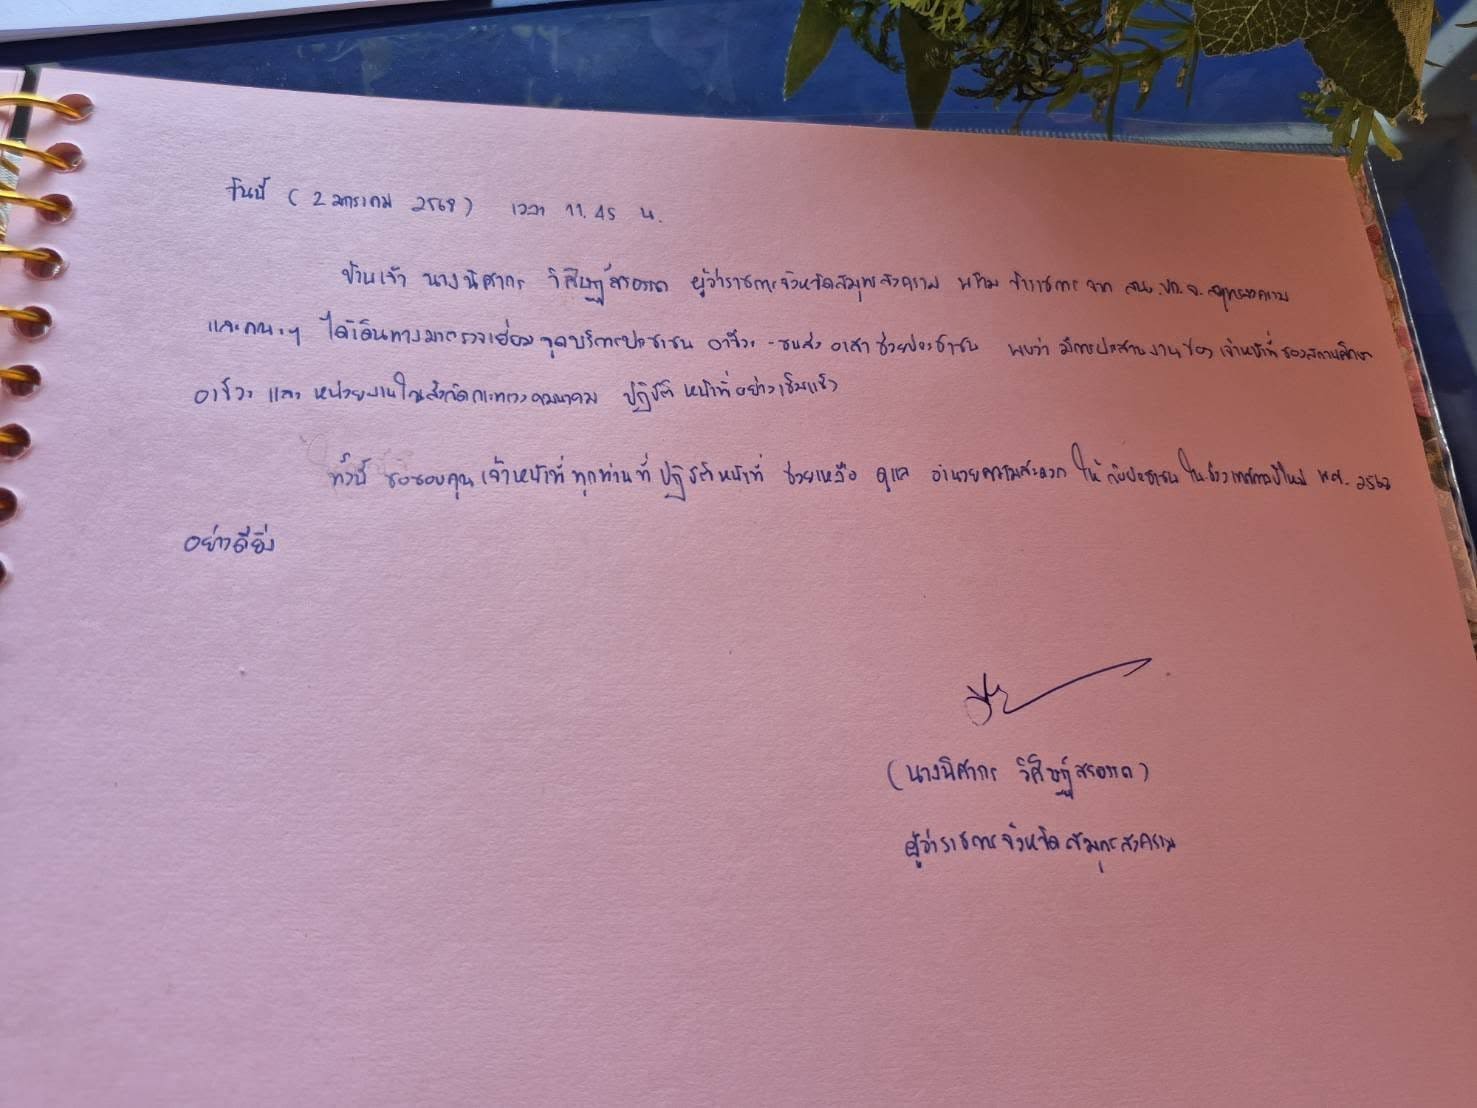 วันนี้ (2 มกราคม 2568) เวลา 11.45 น.
ข้าพเจ้า นางนิศากร วิศิษฏ์สรอรรถ ผู้ว่าราชการจังหวัดสมุทรสงคราม พร้อม ข้าราชการ จาก สนง.ปภ.จ.สมุทรสงคราม
และคณะฯ ได้เดินทางมาตรวจเยี่ยม จุดบริการประชาชน อาชีวะ - ขนส่ง อาสา ช่วยประชาชน พบว่า มีการประสานงานของ เจ้าหน้าที่ของสถานศึกษา
อาชีวะ และ หน่วยงานในสังกัดกระทรวงคมนาคม ปฏิบัติ หน้าที่อย่างเข้มแข็ง
ทั้งนี้ ขอขอบคุณ เจ้าหน้าที่ ทุกท่านที่ ปฏิบัติหน้าที่ ช่วยเหลือ ดูแล อำนวยความสะดวก ให้ กับประชาชน ในช่วงเทศกาลปีใหม่ พ.ศ. 2568
อย่างดียิ่ง
(นางนิศากร วิศิษฏ์สรอรรถ)
ผู้ว่าราชการจังหวัดสมุทรสงคราม